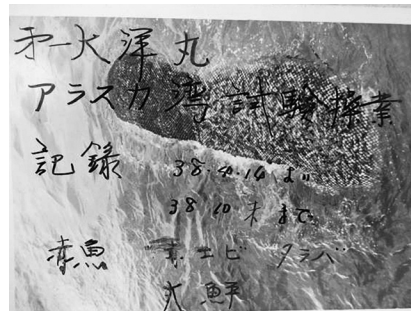 㐧一大洋丸
アラスカ湾試験操業
記錄 38.4.14 より
38.10 末まで
赤魚 エビ タラバ
大鮃